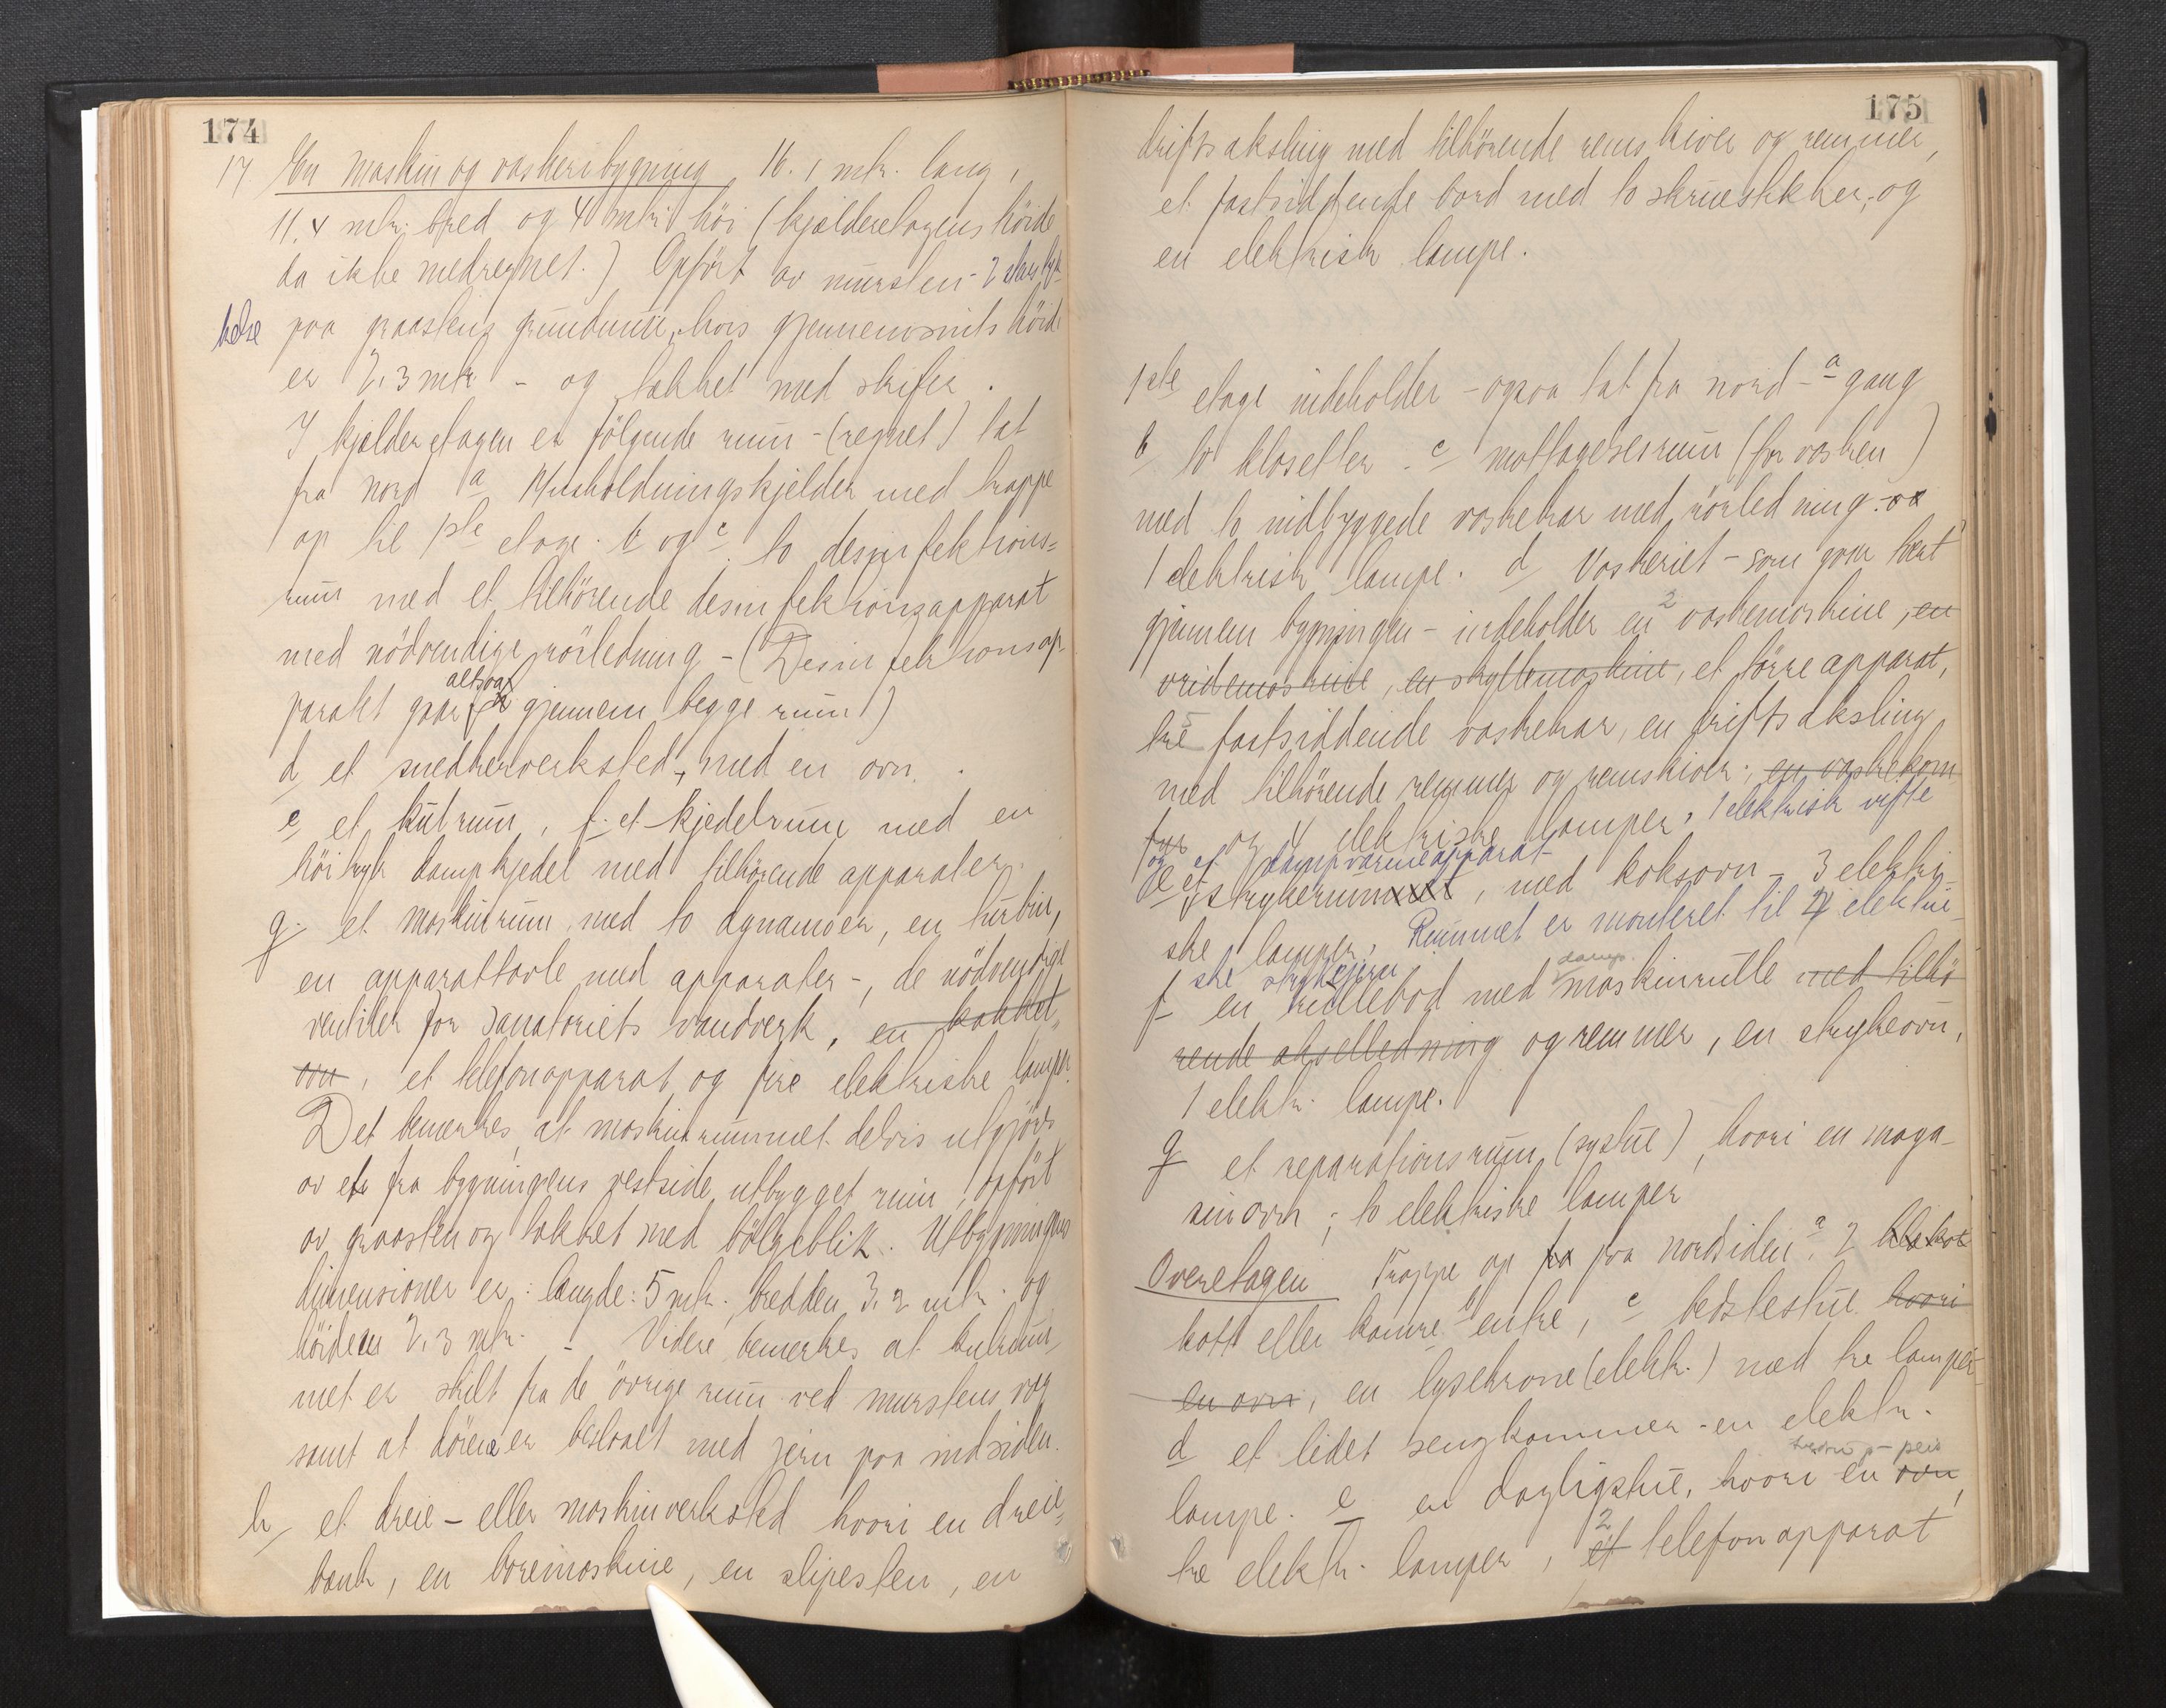 174
17. En maskin og vaskeribygning 16.1 mtr. lang,
11.4 mtr. bred og 4 mtr. höi (kjelderetagens höide
da ikke medregnet.) Opfört av mursten - 2 stens tyk-
kelse paa graastens grundmur, hvis gjennemsnits höide
er 2.3 mtr - og tækket med skifer.
I kjelderetagen er fölgende rum - (regnet) tat
fra nord a Husholdningskjelder med trappe
op til 1ste etage. b og c. to desinfektions=
rum med et tilhörende desinfektionsapparat
med nödvendige rörledning - (Desinfektionsap-
altsaa
paratet gaar gjennem begge rum)
d et snedkerverksted, med en ovn.
e et kulrum, f. et kjedelrum med en
höitryk dampkjedel med tilhörende apparater.
g. et maskinrum, med to dynamoer, en turbin,
en apparattavle med apparater -, de nödvendige
ventiler for Sanatoriets vandverk, en kakkel=
ovn, et telefonapparat, og fire elektriske lamper.
Det bemerkes, at maskinrummet delvis utgjöres
av et fra bygningens vestside utbygget rum, opfört
av graasten og tækket med bölgeblik. Utbygningens
dimensioner er: længde: 5 mtr., bredden 3.2 mtr. og
höiden 2.3 mtr. - Videre bemerkes at kulrum-
met er skilt fra de övrige rum ved murstens væg
samt at dörene er beslaaet med jern paa indsiden.
h et dreie - eller maskinverksted hvori en dreie=
bænk, en boremaskine, en slipesten, en
175
driftsaksling med tilhörende remskiver og remmer,
et fastsiddende bord med to skruestikker, og
en elektrisk lampe.
1ste etage indeholder - ogsaa tat fra nord - a gang
b to klosetter. c mottagelsesrum (for vasken)
med to indbyggede vaskekar med rörledning. og
1 elektrisk lampe. d Vaskeriet - som gaar tvert
gjennem bygningen - indeholder en 2 vaskemaskine, en
vridemaskine, en skyllemaskine, et törreapparat,
tre fastsiddende vaskekar, en driftsaksling
med tilhörende remmer og remskiver. en vaskekom
fur og 4 elektriske lamper. 1 elektrisk vifte
og et dampvarmeapparat
e et strykerum, med koksovn - 3 elektri-
ske lamper. Rummet er monteret til 4 elektri-
ske strykejern
damp.
f en rullebod med maskinrulle med tilhö
rende akselledning og remmer, en strykeovn,
1 elektr. lampe.
g et reparationsrum (systue), hvori en maga-
sinovn; to elektriske lamper
Overetagen Trappe op fra nordsiden a. 2
kott eller kamre b entre, c bedstestue hvori
en ovn, en lysekrone (elektr.) med tre lamper
d et lidet sengkammer - en elektr.
peis
lampe. e en dagligstue, hvori en ovn,
2
tre elektr. lamper, et telefonapparat